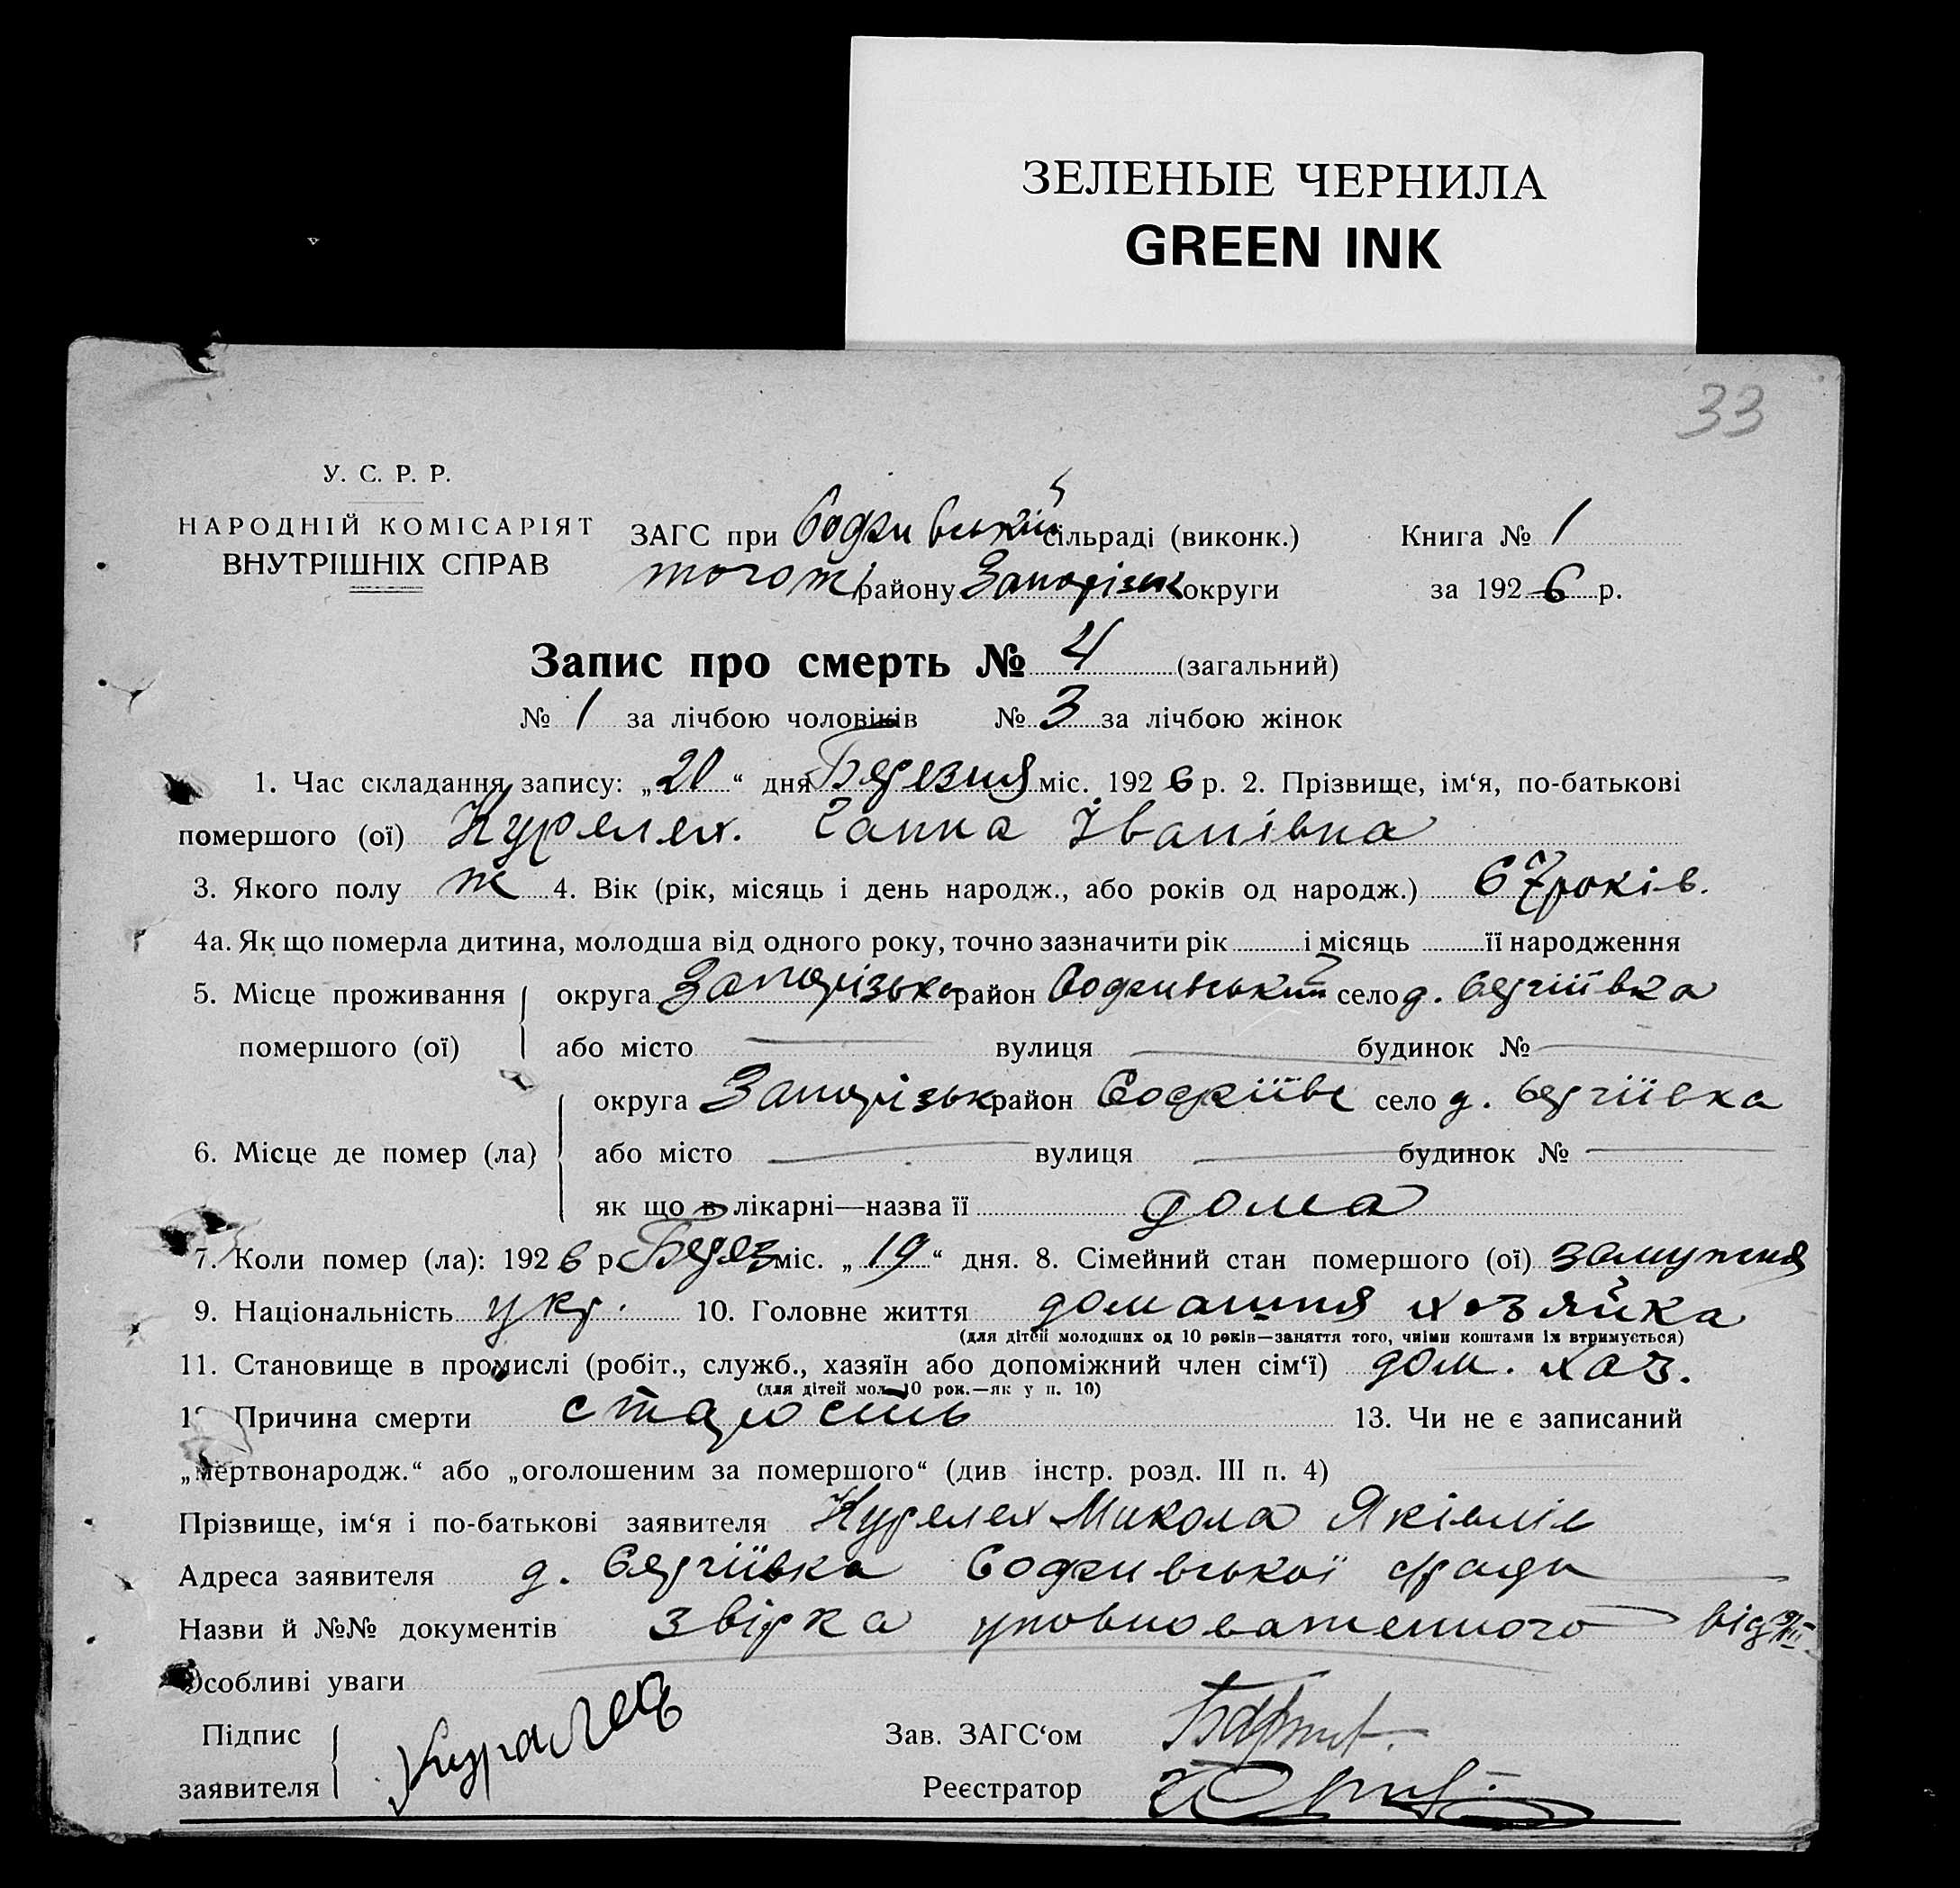 ЗЕЛЕНЫЕ ЧЕРНИЛА
GREEN INK
33
У. С. Р. Р.
НАРОДНІЙ КОМІСАРІЯТ
ВНУТРІШНІХ СПРАВ
ЗАГС при Софиївській сільраді (виконк.)
тогож району Запорізьк округи
Книга № 1
за 1926 р.
Запис про смерть № 4 (загальний)
№ 1 за лічбою чоловіків № 3 за лічбою жінок
1. Час складання запису: „20“ дня Березня міс. 1926 р. 2. Прізвище, ім‘я, по-батькові
помершого (ої) Курелех. Ганна Іванівна
3. Якого полу ж 4. Вік (рік, місяць і день народж., або років од народж.) 67 років.
4а. Як що померла дитина, молодша від одного року, точно зазначити рік і місяць її народження
5. Місце проживання округа Запорізька район Софиивський село д. Сергіївка
помершого (ої) або місто вулиця будинок №
округа Запорізьк район Софіївс село д. Сергіївка
6. Місце де помер (ла) або місто вулиця будинок №
як що в лікарні—назва її дома
7. Коли помер (ла): 1926 р. Берез міс. „19“ дня. 8. Сімейний стан помершого (ої) замужня
9. Національність укр. 10. Головне життя домашня хозяйка
(для дітей молодших од 10 років—заняття того, чиїми коштами їх втримується)
11. Становище в промислі (робіт., служб., хазяїн або допоміжний член сім‘ї) дом. хаз.
(для дітей мол. 10 рок.—як у п. 10)
12 Причина смерти старость 13. Чи не є записаний
„мертвонародж.“ або „оголошеним за помершого“ (див інстр. розд. III п. 4)
Прізвище, ім‘я і по-батькові заявителя Курелех Микола Яківлів
Адреса заявителя д. Сергіївка Софиивської с/ради
Назви й №№ документів звірка уповноваженного від
Особливі уваги
Підпис
заявителя Куралех
Зав. ЗАГС‘ом
Реєстратор